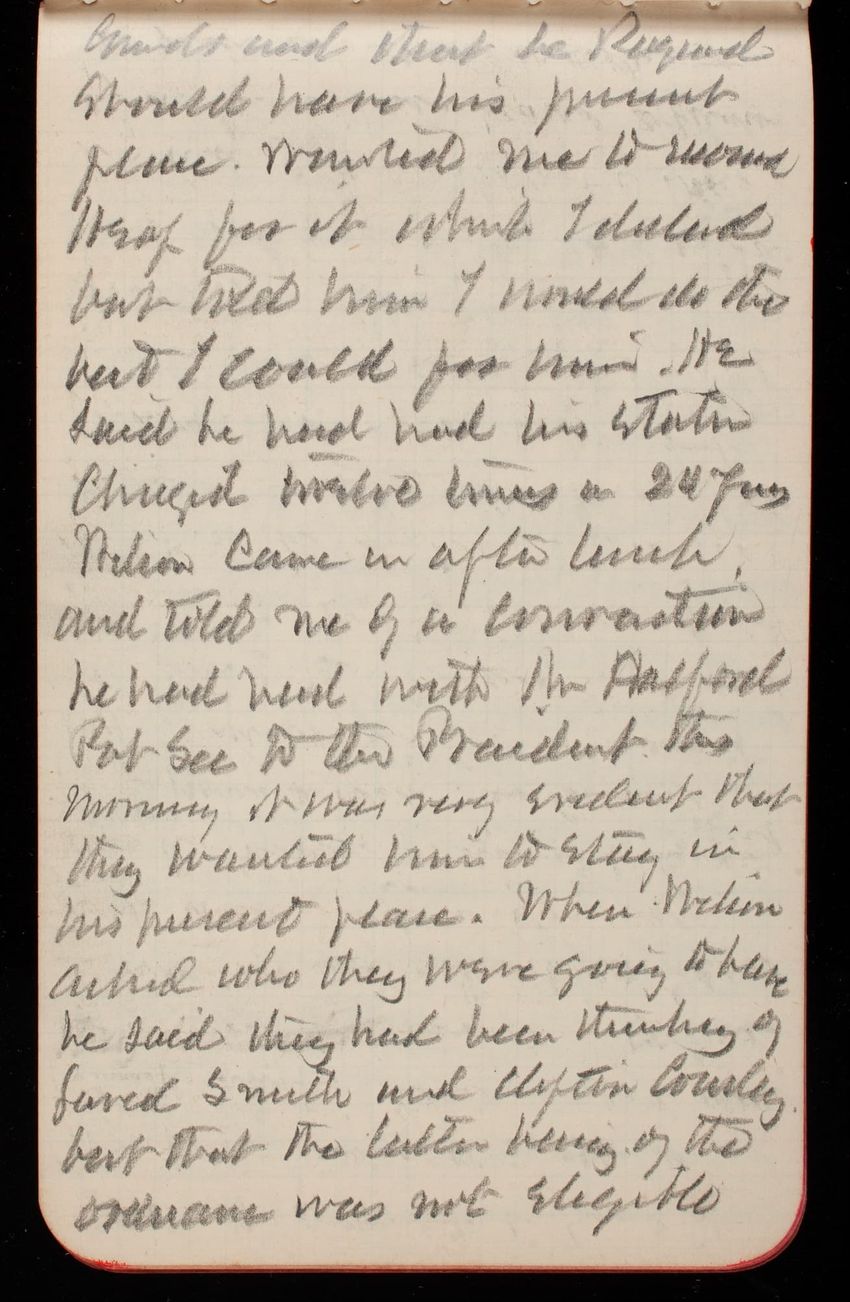 and that he
should have his present
place. Wanted me to
for it which I declined
but told him I would do the
best I could for him. He
said he had had his station
Changed twelve times in 24 years
Nelson Came in after lunch,
and told me of a conversation
he had had with Mr Halford
Pvt Sec to the President this
morning it was very evident that
they wanted him to stay in
his present place. When Nelson
asked who they were going to have
he said they had been thinking of
Jared Smith and Clifton Comly
but that the latter being of the
ordnance was not Eligible